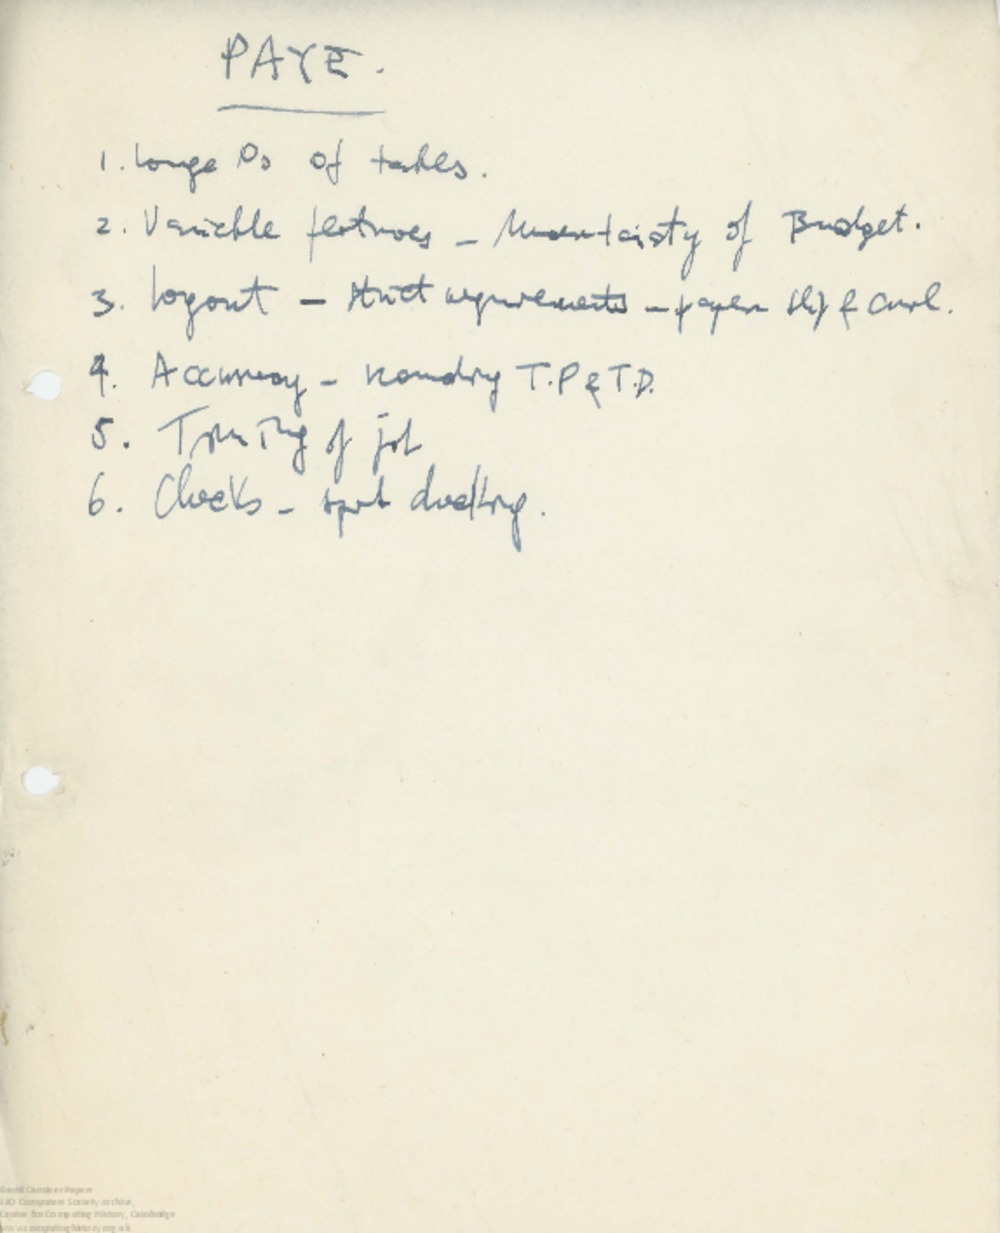 PAYE.
1. Large No of tables.
2. Variable features – Uncertainty of Budget.
3. Layout – strict requirements – paper slip & curl.
4. Accuracy – rounding T.P & T.D.
5. Timing of job
6. Checks – spot checking.
David Caminer Papers
LEO Computers Society Archive,
Centre for Computing History, Cambridge
www.computinghistory.org.uk